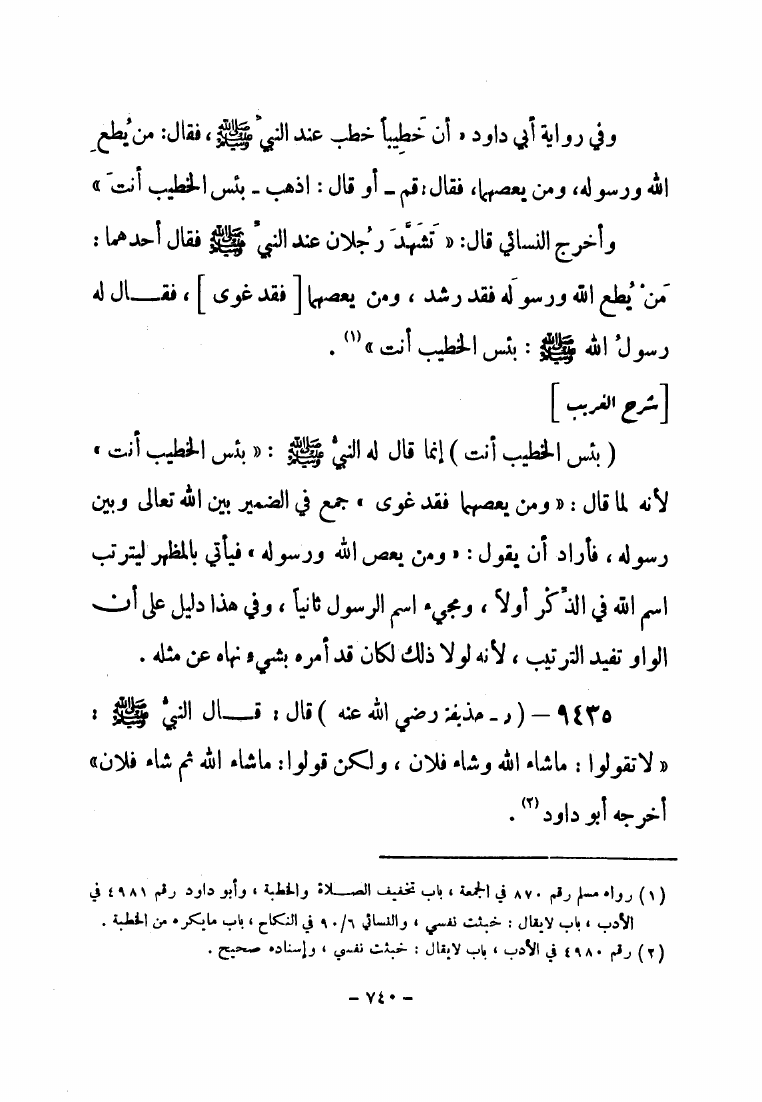 وفي رواية أبي داود « أن خَطِيباً خطب عند النبيِّ ﷺ ، فقال: من يُطعِ
الله ورسوله، ومن يعصها، فقال: قم ـ أو قال : اذهب ـ بئس الخطيب أنتَ »
وأخرج النسائي قال: « تَشَهَّدَ رَجُلان عند النبيِّ ﷺ فقال أحدهما :
مَنْ يُطِع الله ورسولَه فقد رشد ، ومن يعصهما [ فقد غوى ] ، فقـــال له
رسولُ الله ﷺ : بئس الخطيب أنت »(١) .
[شرح الغريب ]
( بئس الخطيب أنت ) إنما قال له النبيُّ ﷺ : « بئس الخطيب أنت »
لأنه لما قال : « ومن يعصهما فقد غوى » جمع في الضمير بين الله تعالى وبين
رسوله ، فأراد أن يقول : « ومن يعص الله ورسوله » فيأتي بالمظهر ليترتب
اسم الله في الذِّكْر أولاً ، ومجيء اسم الرسول ثانياً ، وفي هذا دليل على أن
الواو تفيد الترتيب ، لأنه لولا ذلك لكان قد أمره بشيء نهاه عن مثله .
٩٤٣٥ — ( د ـ حذيفة رضي الله عنه ) قال : قـــال النبيُّ ﷺ :
« لا تقولوا : ماشاء الله وشاء فلان ، ولكن قولوا : ماشاء الله ثم شاء فلان»
أخرجه أبو داود(٢) .
(١) رواه مسلم رقم ٨٧٠ في الجمعة ، باب تخفيف الصـــلاة والخطبة ، وأبو داود رقم ٤٩٨١ في
الأدب ، باب لايقال : خبثت نفسي ، والنسائي ٩٠/٦ في النكاح ، باب مايكره من الخطبة .
(٢) رقم ٤٩٨٠ في الأدب ، باب لايقال : خبثت نفسي ، وإسناده صحيح .
- ٧٤٠ -